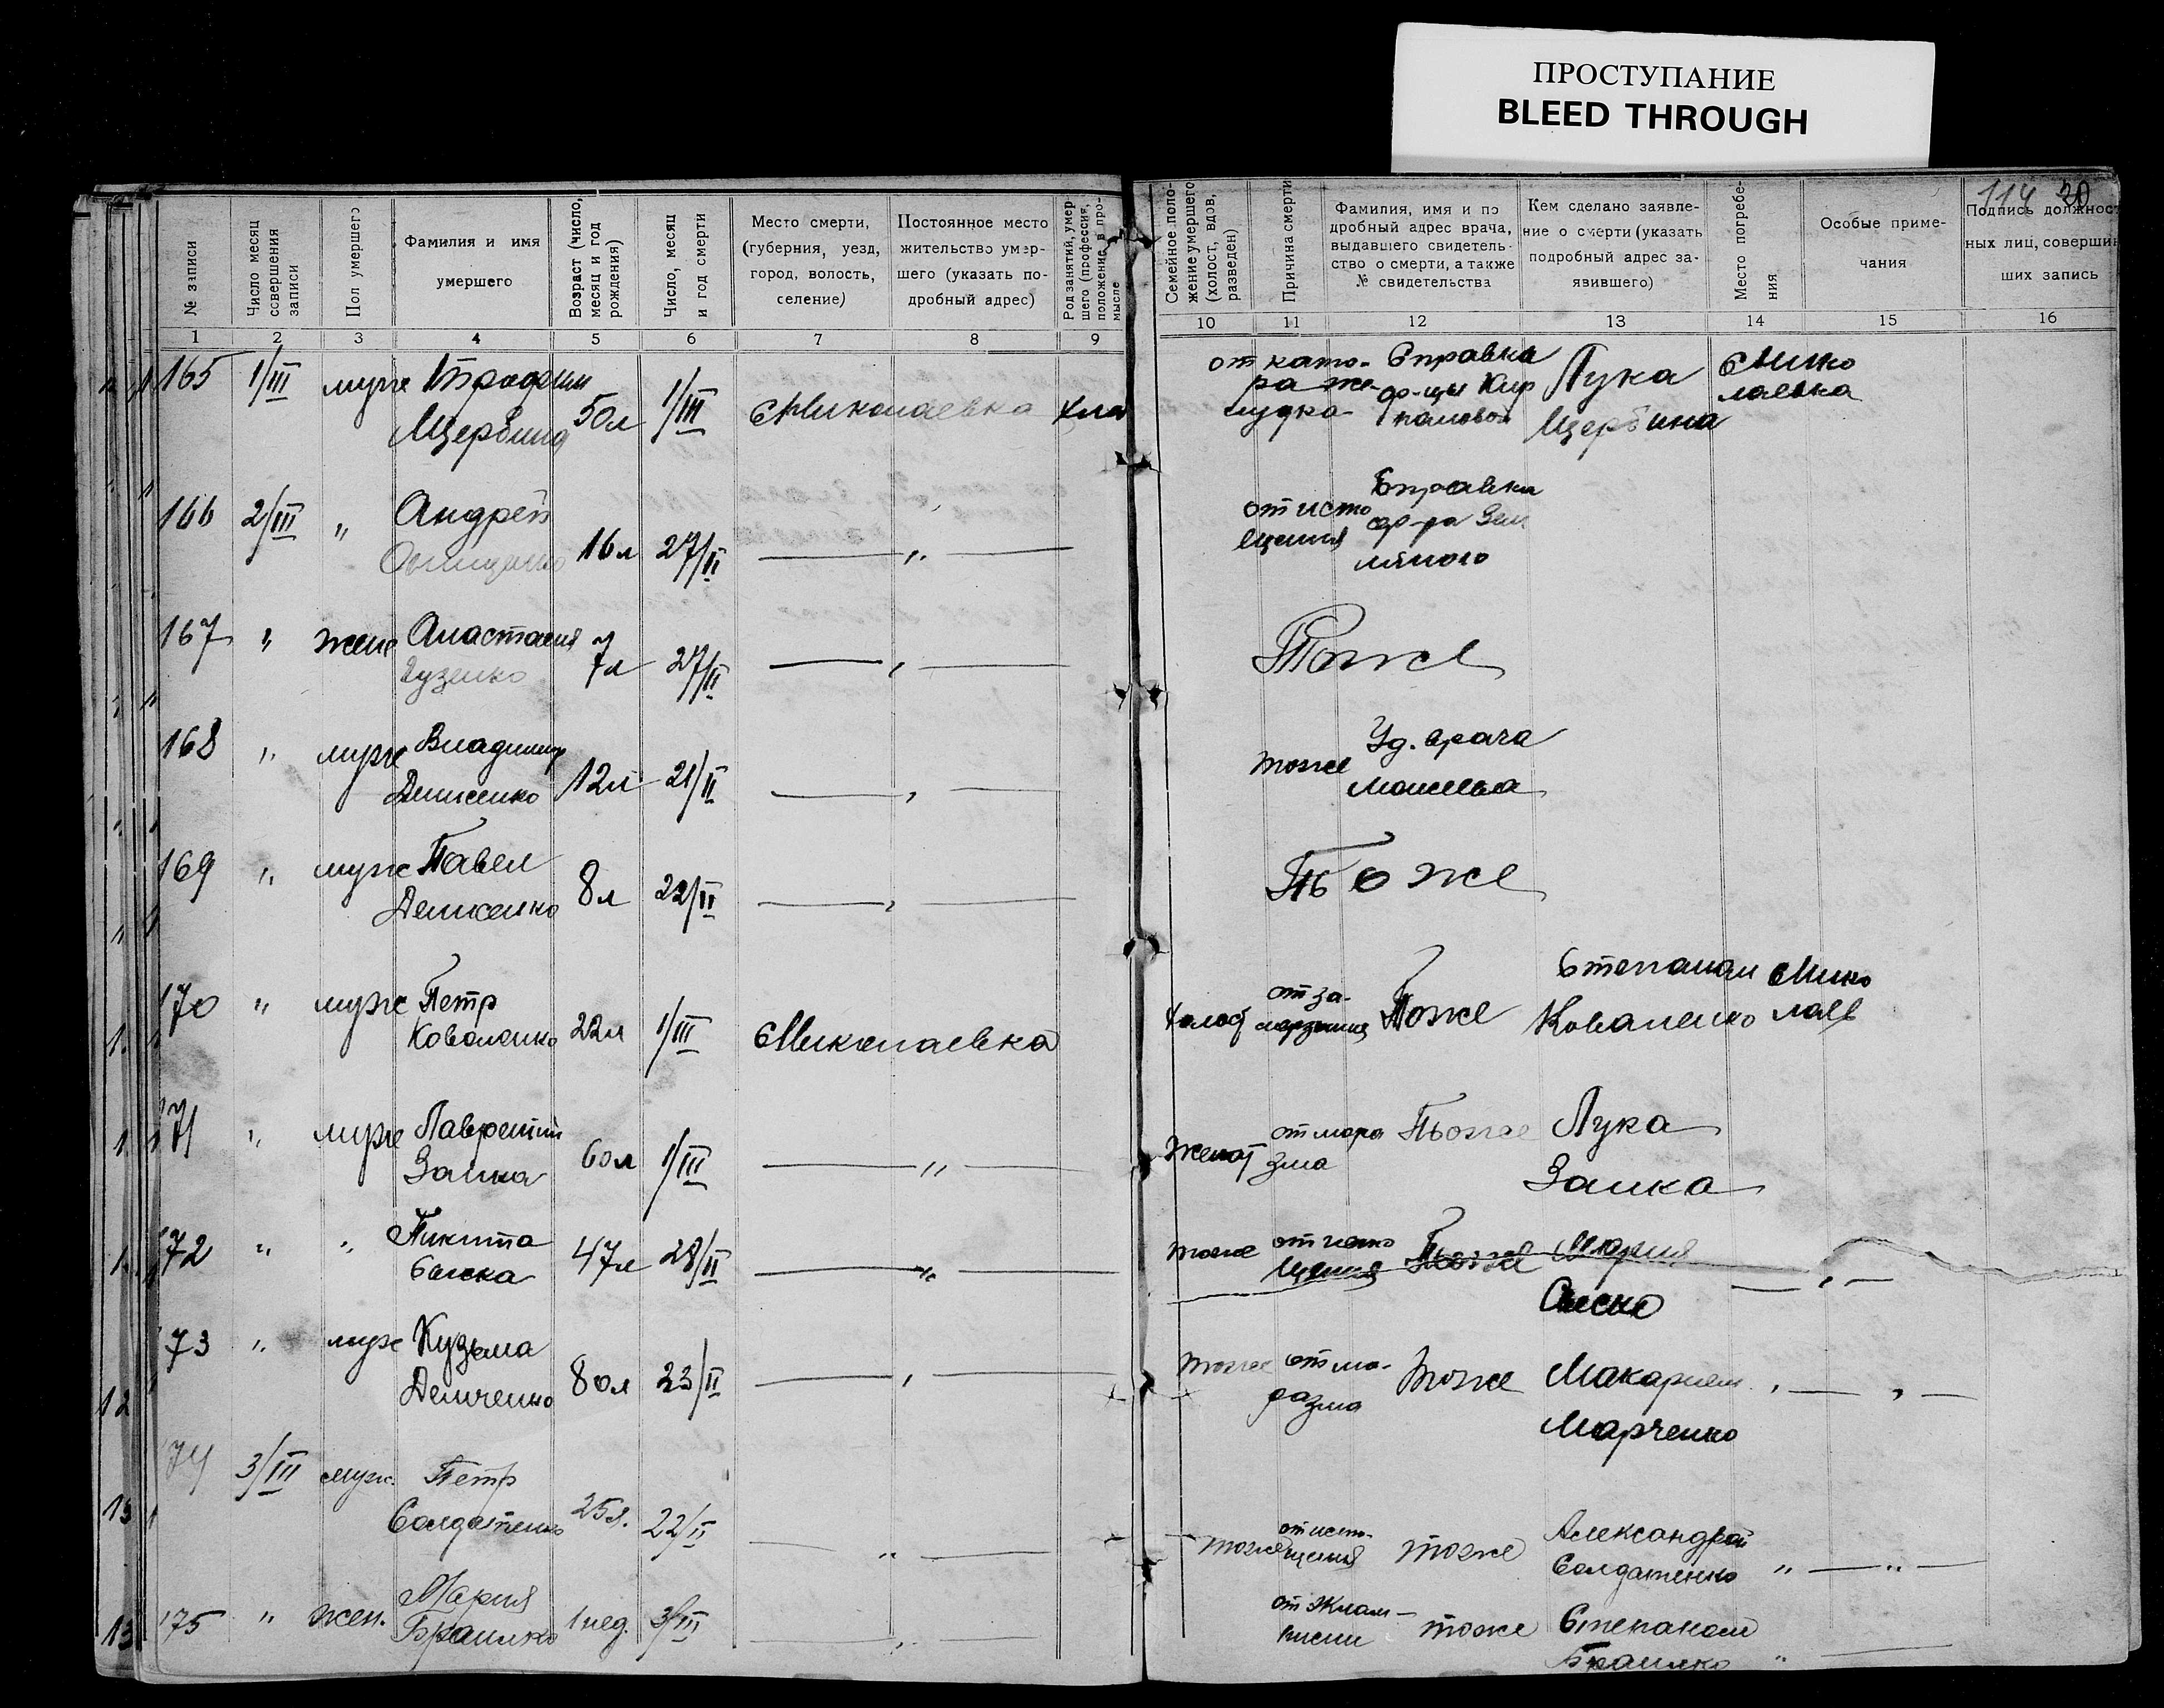 ПРОСТУПАНИЕ
BLEED THROUGH
114 20
№ записи
Число месяц совершения записи
Пол умершего
Фамилия и имя умершего
Возраст (число, месяц и год рождения)
Число, месяц и год смерти
Место смерти, (губерния, уезд, город, волость, селение)
Постоянное место жительство умершего (указать подробный адрес)
Род занятий, умершего (профессия, положение в промысле
Семейное положение умершего (холост, вдов, разведен)
Причина смерти
Фамилия, имя и подробный адрес врача, выдавшего свидетельство о смерти, а также № свидетельства
Кем сделано заявление о смерти (указать подробный адрес заявившего)
Место погребения
Особые примечания
Подпись должностных лиц, совершивших запись
1 2 3 4 5 6 7 8 9 10 11 12 13 14 15 16
165 1/III муж Трофим Щербина 50л 1/III с Николаевка хле от ката- ра же- лудка Справка Лука Щербина с Нико лаевка
166 2/III " Андрей 16л 27/II — " — от исто щения Справка
167 " жен Анастасия Гузенко 7л 27/II — " — Тоже
168 " муж Владимир Денисенко 12л 21/II — " — тоже Уд. врача
169 " муж Павел Денисенко 8л 22/II — " — Тоже
170 " муж Петр Коваленко 22л 1/III с Николаевка холост от за- мерзания Тоже Степаном Коваленко с Нико лаев
171 " муж Лаврентий Заика 60л 1/III — " — женат от мара зма Тоже Лука Заика
172 " " Никита 47л 28/II — " — тоже от исто щения Тоже Мария — " —
173 " муж Кузьма Демченко 80л 23/II — " — тоже от ма- разма тоже Макарием Марченко " — " —
174 3/III муж. Петр Солдатенко 25л. 22/II — " — тоже от исто- щения тоже Александрой Солдатенко " — " —
175 " жен. Мария Браилко 1 нед. 3/III — " — от эклам- псии тоже Степаном Браилко "